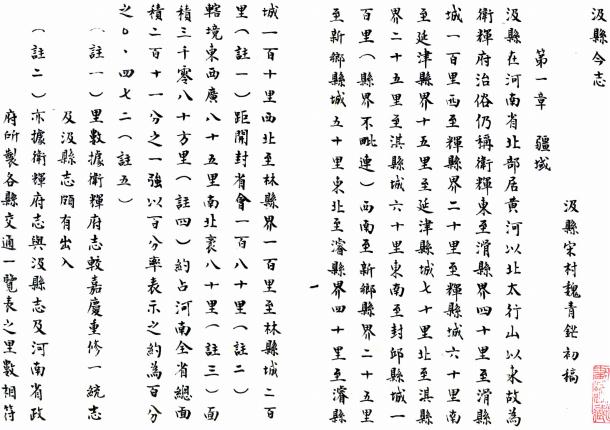 汲縣今志
汲縣宋村魏青鋩初稿
第一章 疆域
汲縣在河南省北部居黃河以北太行山以東故為
衛輝府治俗仍稱衛輝東至滑縣界四十里至滑縣
城一百里西至輝縣界二十里至輝縣城六十里南
至延津縣界十五里至延津縣城七十里北至淇縣
界二十五里至淇縣城六十里東南至封邱縣城一
百里（縣界不毗連）西南至新鄉縣界二十五里
至新鄉縣城五十里東北至濬縣界四十里至濬縣
一
城一百十里西北至林縣界一百里至林縣城二百
里（註一）距開封省會一百八十里（註二）
轄境東西廣八十五里南北袤八十里（註三）面
積三千零八十方里（註四）約占河南全省總面
積二百十一分之一強以百分率表示之約為百分
之０．四七二（註五）
（註一）里數據衛輝府志較嘉慶重修一統志
及汲縣志頗有出入
（註二）亦據衛輝府志與汲縣志及河南省政
府所製各縣交通一覽表之里數相符